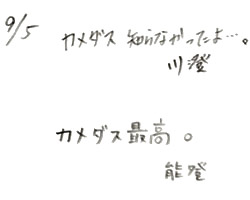 9/5 カメダス 知らなかったよ…。
川澄
カメダス最高。
能登